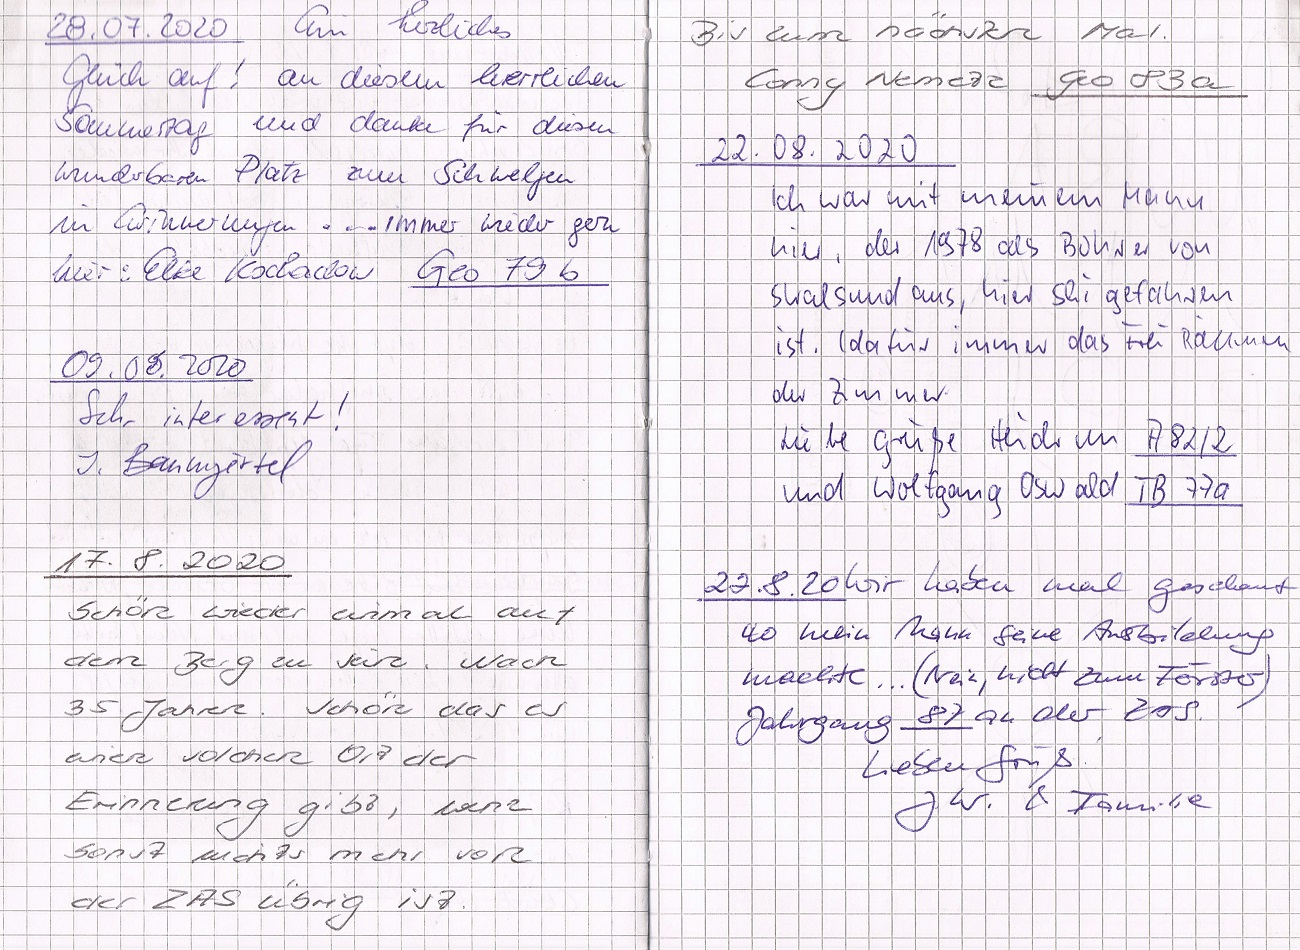 28.07.2020 Ein herzliches
Glück auf! an diesem herrlichen
Sommertag und danke für diesen
wunderbaren Platz zum Schwelgen
in Erinnerungen ..... immer wieder gern
hier: Elke Geo 79 b
09.08.2020
Sehr interessant!
J. Baumgärtel
17. 8. 2020
Schön wieder einmal auf
dem Berg zu sein. Nach
35 Jahren. Schön das es
einen solchen Ort der
Erinnerung gibt, wenn
sonst nichts mehr von
der ZAS übrig ist.
Bis zum nächsten Mal.
Conny Nemetz Geo 83a
22. 08. 2020
Ich war mit meinem Mann
hier, der 1978 als Bohrer von
Stralsund aus, hier Ski gefahren
ist. (dafür immer das Frei Räumen
der Zimmer
Liebe Grüße Heidrun A 82/2
und Wolfgang Oswald TB 77a
27.8.20 Wir haben mal geschaut
wo mein Mann seine Ausbildung
machte... (Nein, nicht zum Förster)
Jahrgang 87 an der ZAS.
Lieben Gruß
J.W. & Familie